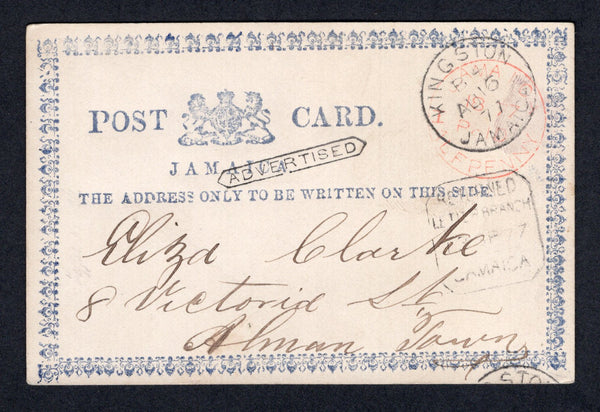 POST CARD.
JAMAICA.
ADVERTISED
THE ADDRESS ONLY TO BE WRITTEN ON THIS SIDE.
KINGSTON
JAMAICA
RETURNED
LETTER BRANCH
JAMAICA
Eliza Clarke
8 Victoria St
Alman Town
STON